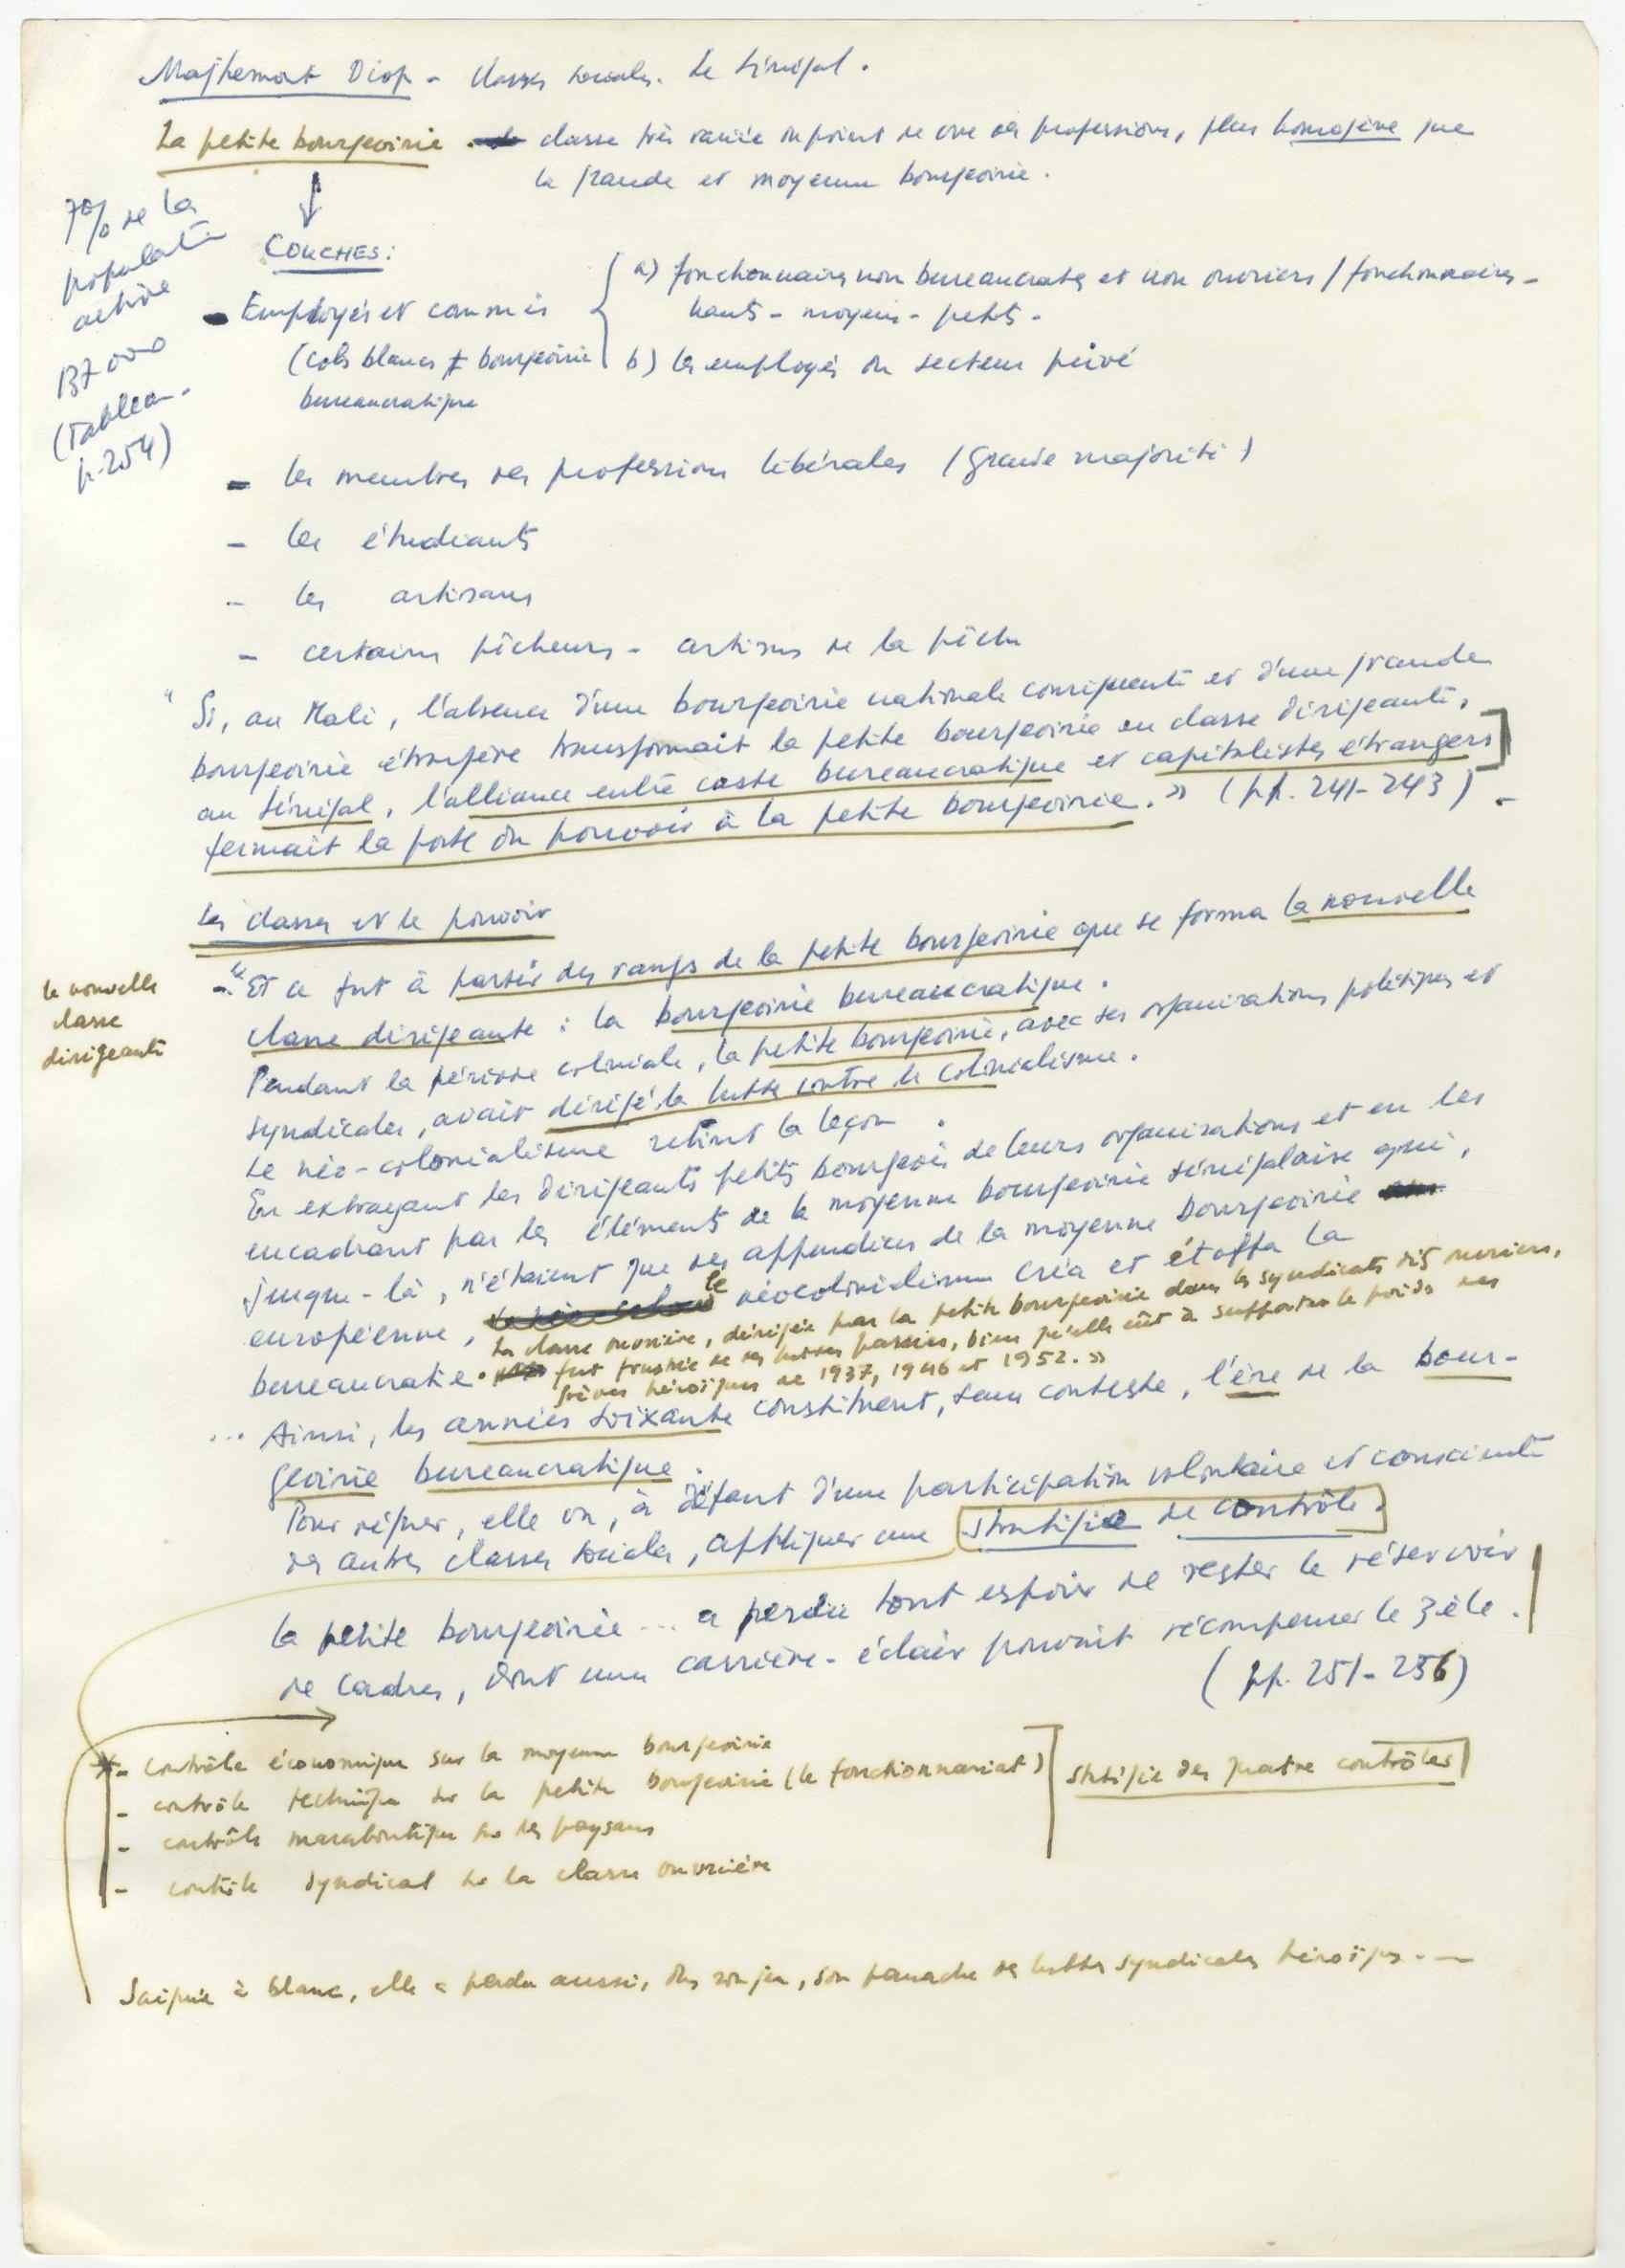 Majhemout Diop - Classes sociales. Le Sénégal.
La petite bourgeoisie. classe très variée du point de vue des professions, plus homogène que
la grande et moyenne bourgeoisie.
7% de la
population
active
137 000
(Tableau.
p. 254)
COUCHES:
- Employés et commis
(cols blancs ≠ bourgeoisie
bureaucratique
a) fonctionnaires non bureaucrates et non ouvriers / fonctionnaires -
hauts - moyens - petits -
b) les employés du secteur privé
- les membres des professions libérales (grande majorité)
- les étudiants
- les artisans
- certains pêcheurs - artisans de la pêche
" Si, au Mali, l'absence d'une bourgeoisie nationale conséquente et d'une grande
bourgeoisie étrangère transformait la petite bourgeoisie en classe dirigeante,
au Sénégal, l'alliance entre caste bureaucratique et capitalistes étrangers
fermait la porte du pouvoir à la petite bourgeoisie. » (pp. 241-243). -
Les classes et le pouvoir
la nouvelle
classe
dirigeante
-" Et ce fut à partir des rangs de la petite bourgeoisie que se forma la nouvelle
classe dirigeante : la bourgeoisie bureaucratique.
Pendant la période coloniale, la petite bourgeoisie, avec ses organisations politiques et
syndicales, avait dirigé la lutte contre le colonialisme.
Le néo-colonialisme retint la leçon.
En extrayant les dirigeants petits bourgeois de leurs organisations et en les
encadrant par les éléments de la moyenne bourgeoisie sénégalaise qui,
jusque-là, n'étaient que des appendices de la moyenne bourgeoisie
européenne, le néocolonialisme créa et étoffa la
bureaucratie.
La classe ouvrière, dirigée par la petite bourgeoisie dans les syndicats dits ouvriers,
fut frustrée de ses luttes passées, bien qu'elle eût à supporter le poids des
grèves héroïques de 1937, 1946 et 1952. »
... Ainsi, les années soixante constituent, sans conteste, l'ère de la bour-
geoisie bureaucratique.
Pour régner, elle va, à défaut d'une participation volontaire et consciente
des autres classes sociales, appliquer une stratégie de contrôle.
La petite bourgeoisie ... a perdu tout espoir de rester le réservoir
de cadres, dont une carrière-éclair pouvait récompenser le zèle.
(pp. 251-256)
*- contrôle économique sur la moyenne bourgeoisie
- contrôle technique sur la petite bourgeoisie (le fonctionnariat)
- contrôle maraboutique sur les paysans
- contrôle syndical sur la classe ouvrière
stratégie des quatre contrôles
Saignée à blanc, elle a perdu aussi, son panache des luttes syndicales héroïques. -